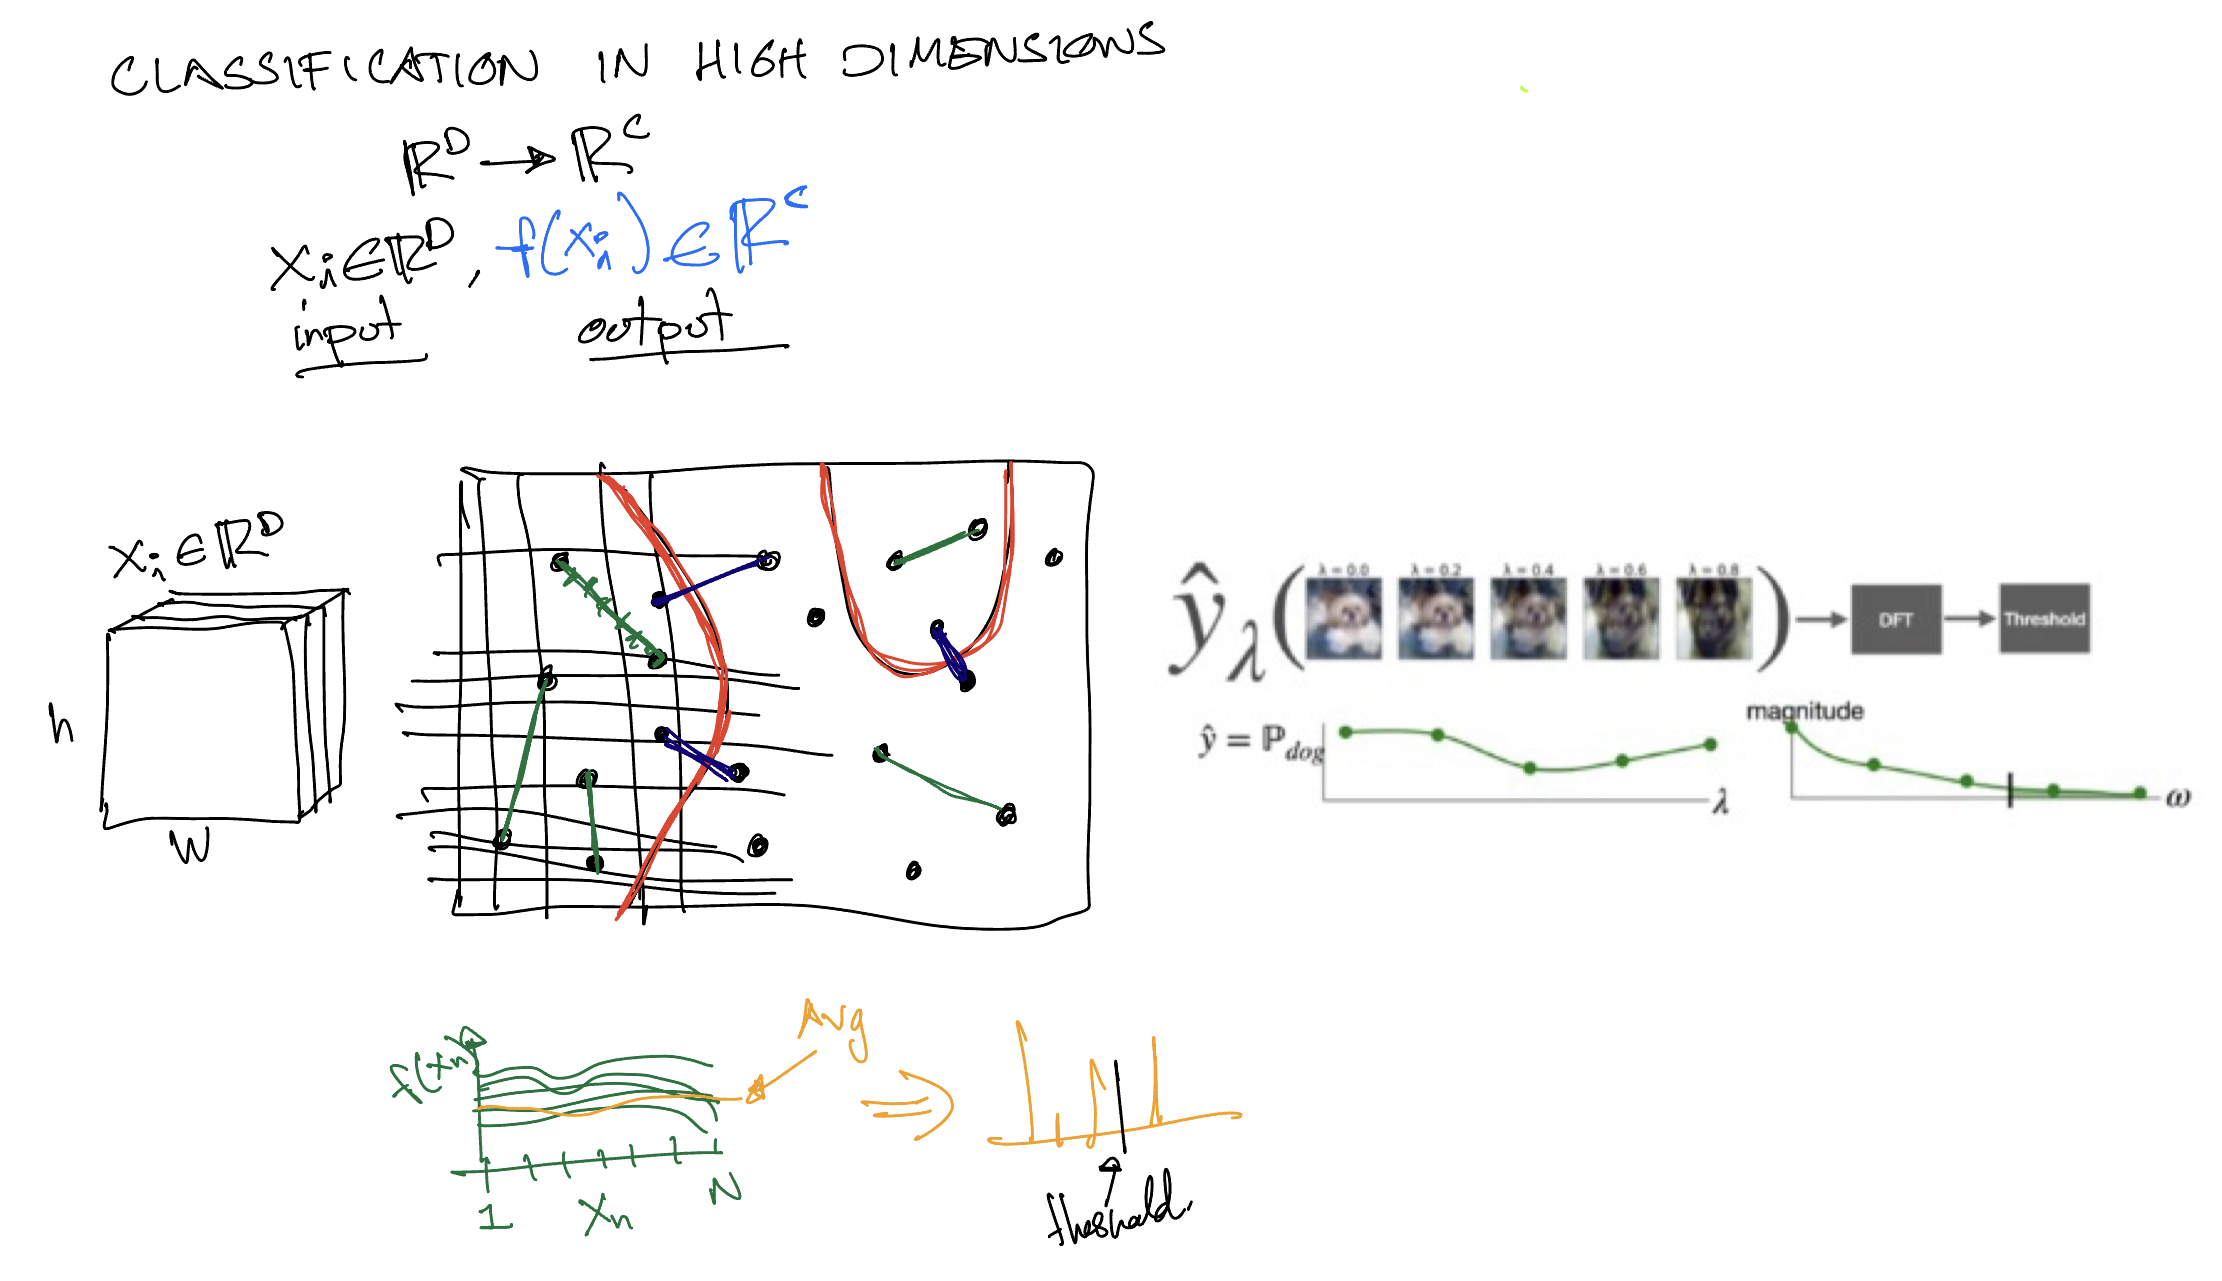 CLASSIFICATION IN HIGH DIMENSIONS
ℝᴰ → ℝᶜ
xᵢ ∈ ℝᴰ, f(xᵢ) ∈ ℝᶜ
input output
xᵢ ∈ ℝᴰ
h
W
λ = 0.0 λ = 0.2 λ = 0.4 λ = 0.6 λ = 0.8
ŷ_λ( ) DFT Threshold
magnitude
ŷ = ℙ_dog
λ
ω
Avg
f(xₙ)
1 xₙ N
theshold.